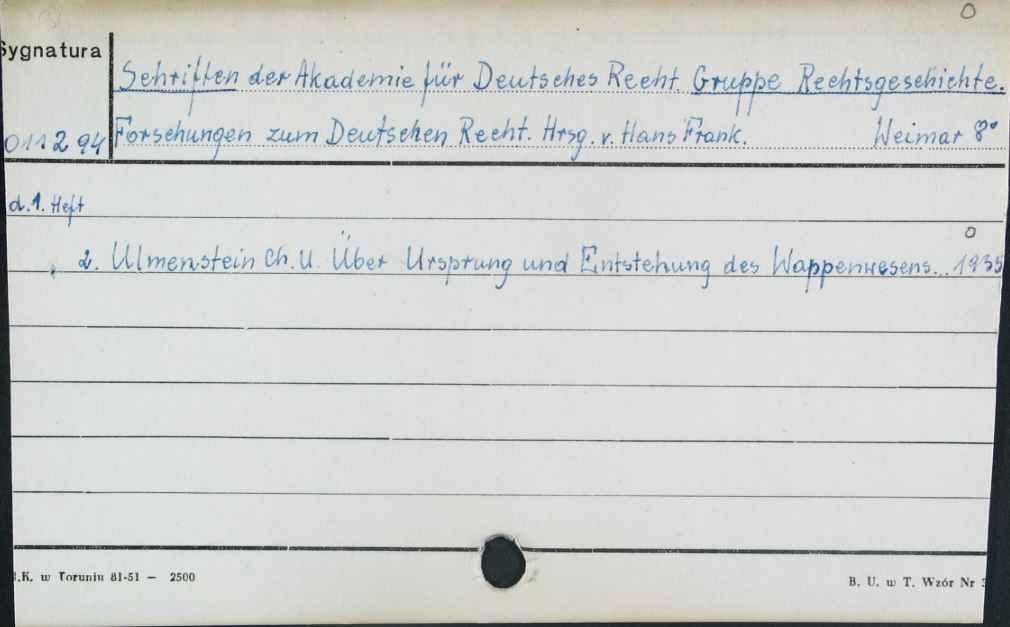 o
Sygnatura
Schriften der Akademie für Deutsches Recht. Gruppe Rechtsgeschichte.
011294 Forschungen zum Deutschen Recht. Hrsg. v. Hans Frank. Weimar 8°
d.1. Heft
o
2. Ulmenstein Ch. U. Über Ursprung und Entstehung des Wappenwesens... 1935
.K. w Toruniu 81-51 — 2500
B. U. w T. Wzór Nr